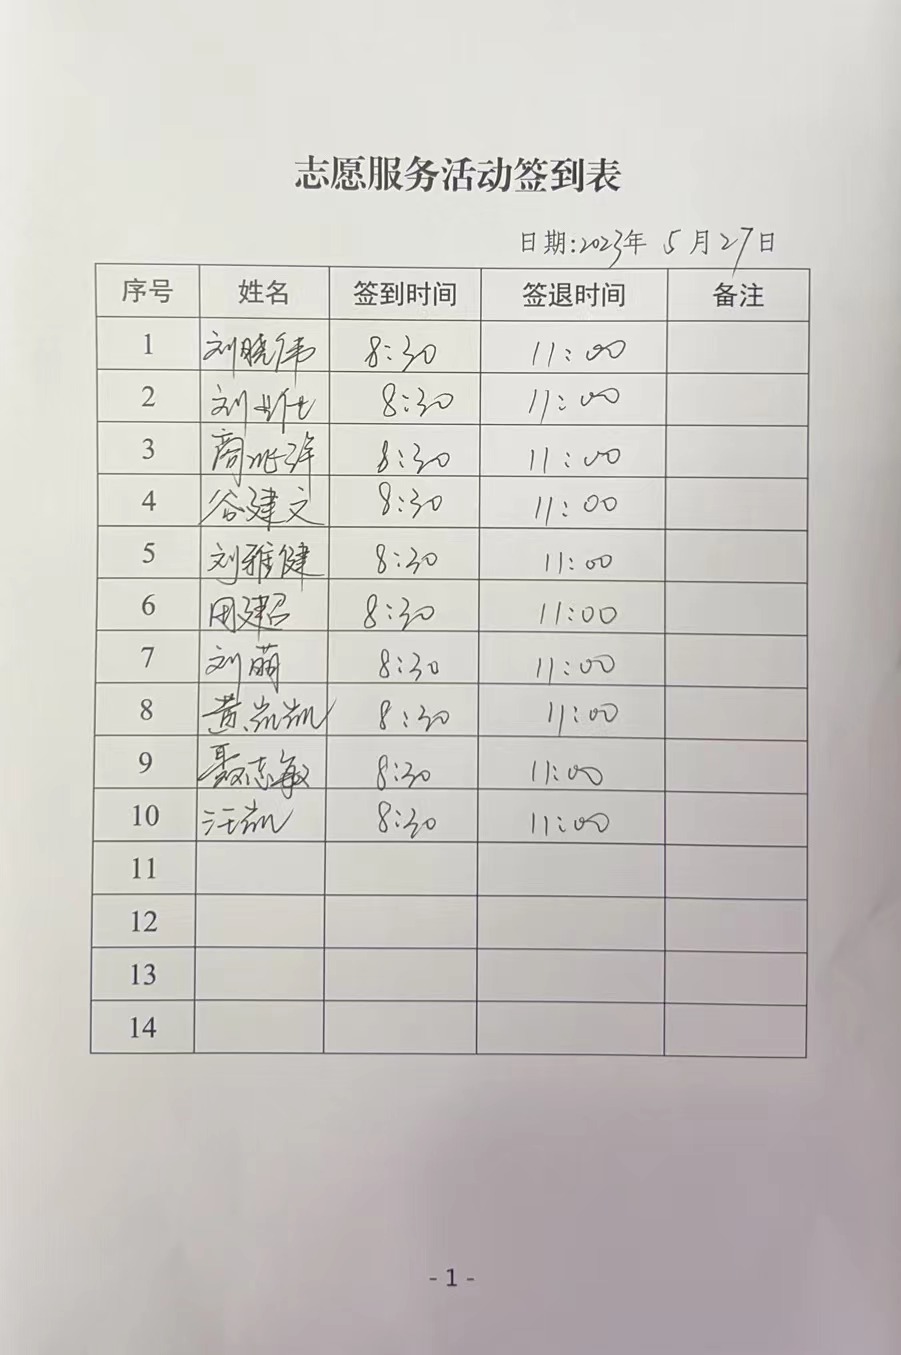 志愿服务活动签到表
日期:2023年 5月27日
序号 姓名 签到时间 签退时间 备注
1 刘晓伟 8:30 11:00
2 刘 8:30 11:00
3 商 8:30 11:00
4 谷建文 8:30 11:00
5 刘雅健 8:30 11:00
6 建召 8:30 11:00
7 刘萌 8:30 11:00
8 黄凯凯 8:30 11:00
9 聂志敏 8:30 11:00
10 汪凯 8:30 11:00
11
12
13
14
- 1 -